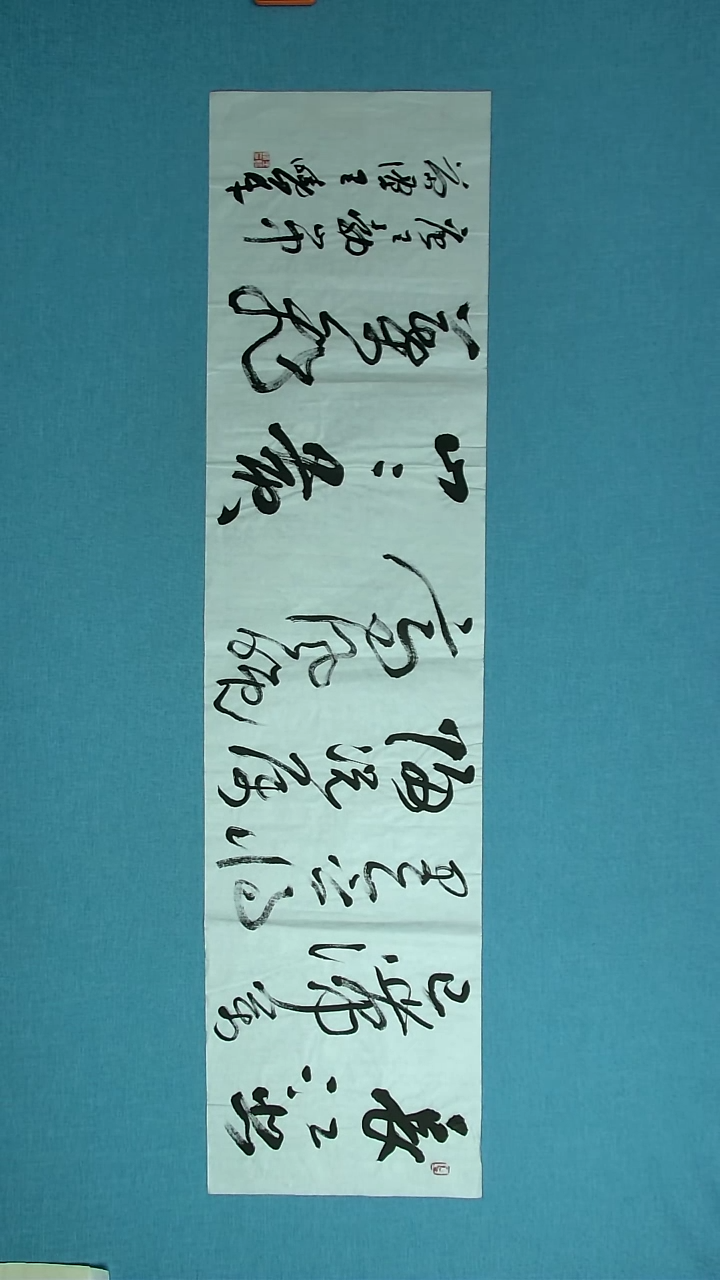 長江悲
已滯萬
里念將
歸況屬
高風晚
山山黄
葉飛
唐王勃山中